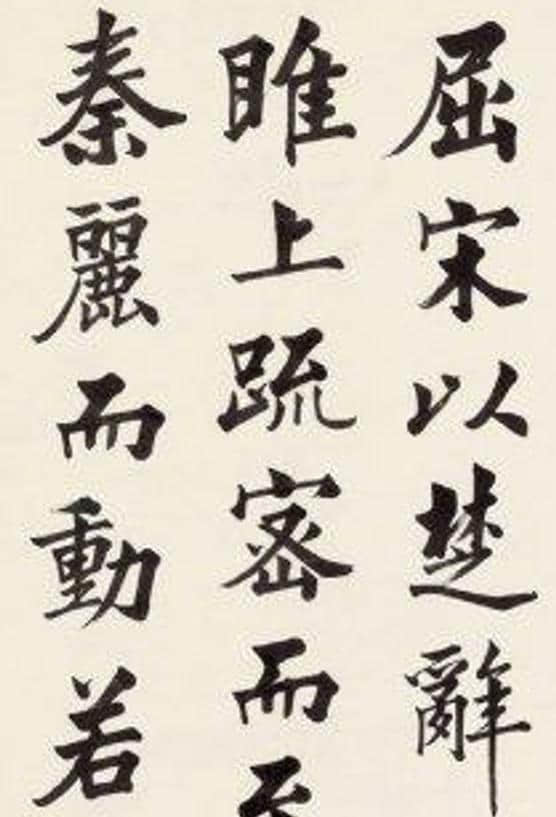 屈宋以楚辭
睢上疏密而至
秦麗而動若